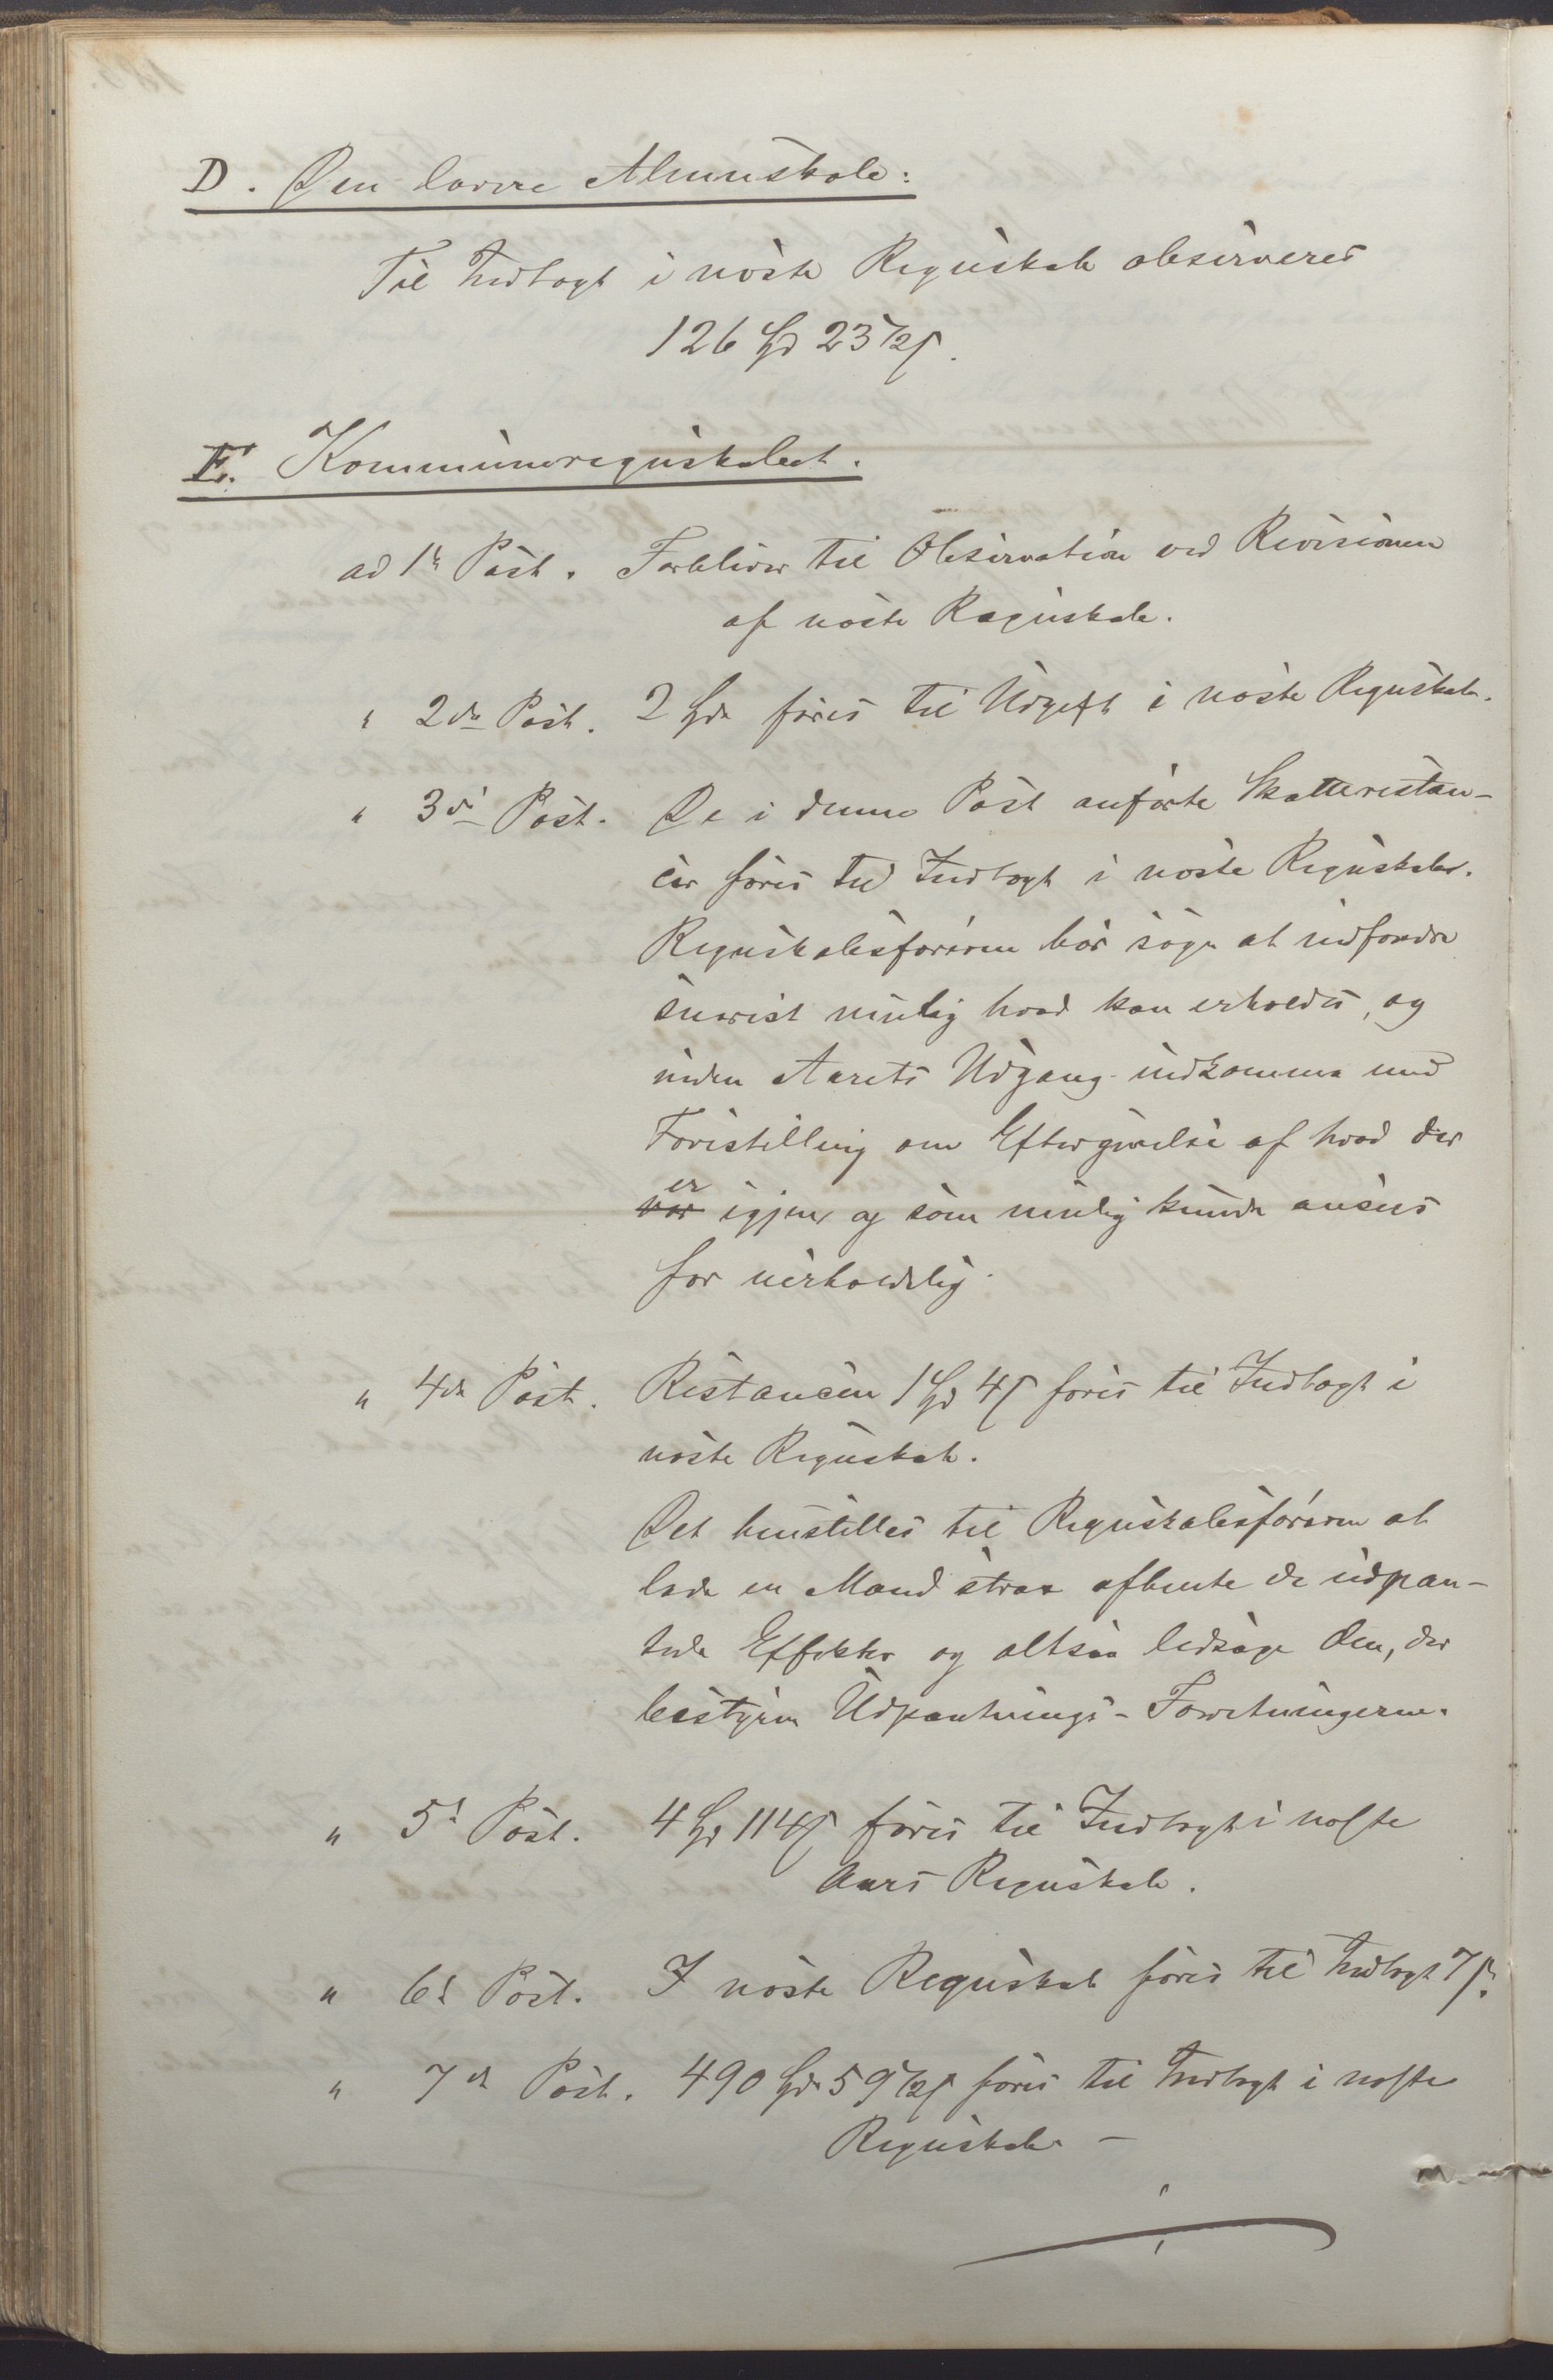 D. Den lavere Almuskole:
Til Indtægt i næste Regnskab observeres
126 Spd 23 1/2 ß.
E. Kommuneregnskabet.
ad 1te Post. Forbliver til Observation ved Revisionen
af næste Regnskab.
" 2den Post. 2 Spd føres til Udgift i næste Regnskab.
" 3die Post. De i denne Post anførte Skatterestan-
cer føres til Indtægt i næste Regnskab.
Regnskabsføreren bør søge at indfordre
snarest mulig hvad kan erholdes, og
inden Aarets Udgang indkomme med
Forestilling om Eftergivelse af hvad der
er igjen og som mulig kunde ansees
for uerholdelig.
" 4de Post. Restancen 1 Spd 4 ß føres til Indtægt i
næste Regnskab.
Det henstilles til Regnskabsføreren at
lade en Mand strax afhente de udpan-
tede Effekter og altsaa ledsage den, der
bestyrer Udpantnings-Forretningerne.
" 5te Post. 4 Spd 114 ß føres til Indtægt i næste
Aars Regnskab.
" 6te Post. I næste Regnskab føres til Indtægt 7 ß.
" 7de Post. 490 Spd 59 1/2 ß føres til Indtægt i næste
Regnskab. —